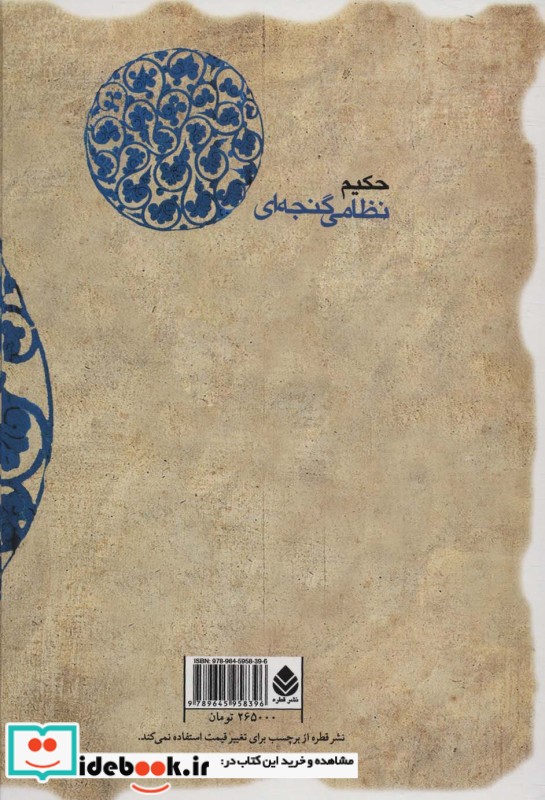 حکیم
نظامی گنجه‌ای
ISBN: 978-964-5958-39-6
9 789645 958396
نشر قطره
۲۶۵۰۰۰ تومان
نشر قطره از برچسب برای تغییر قیمت استفاده نمی‌کند.
مشاهده و خرید این کتاب در:
idebook.ir